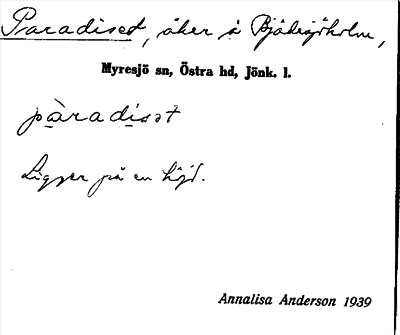 Paradiset, åker å Bjädesjöholm,
Myresjö sn, Östra hd, Jönk. l.
pàradisat
Ligger på en höjd.
Annalisa Anderson 1939